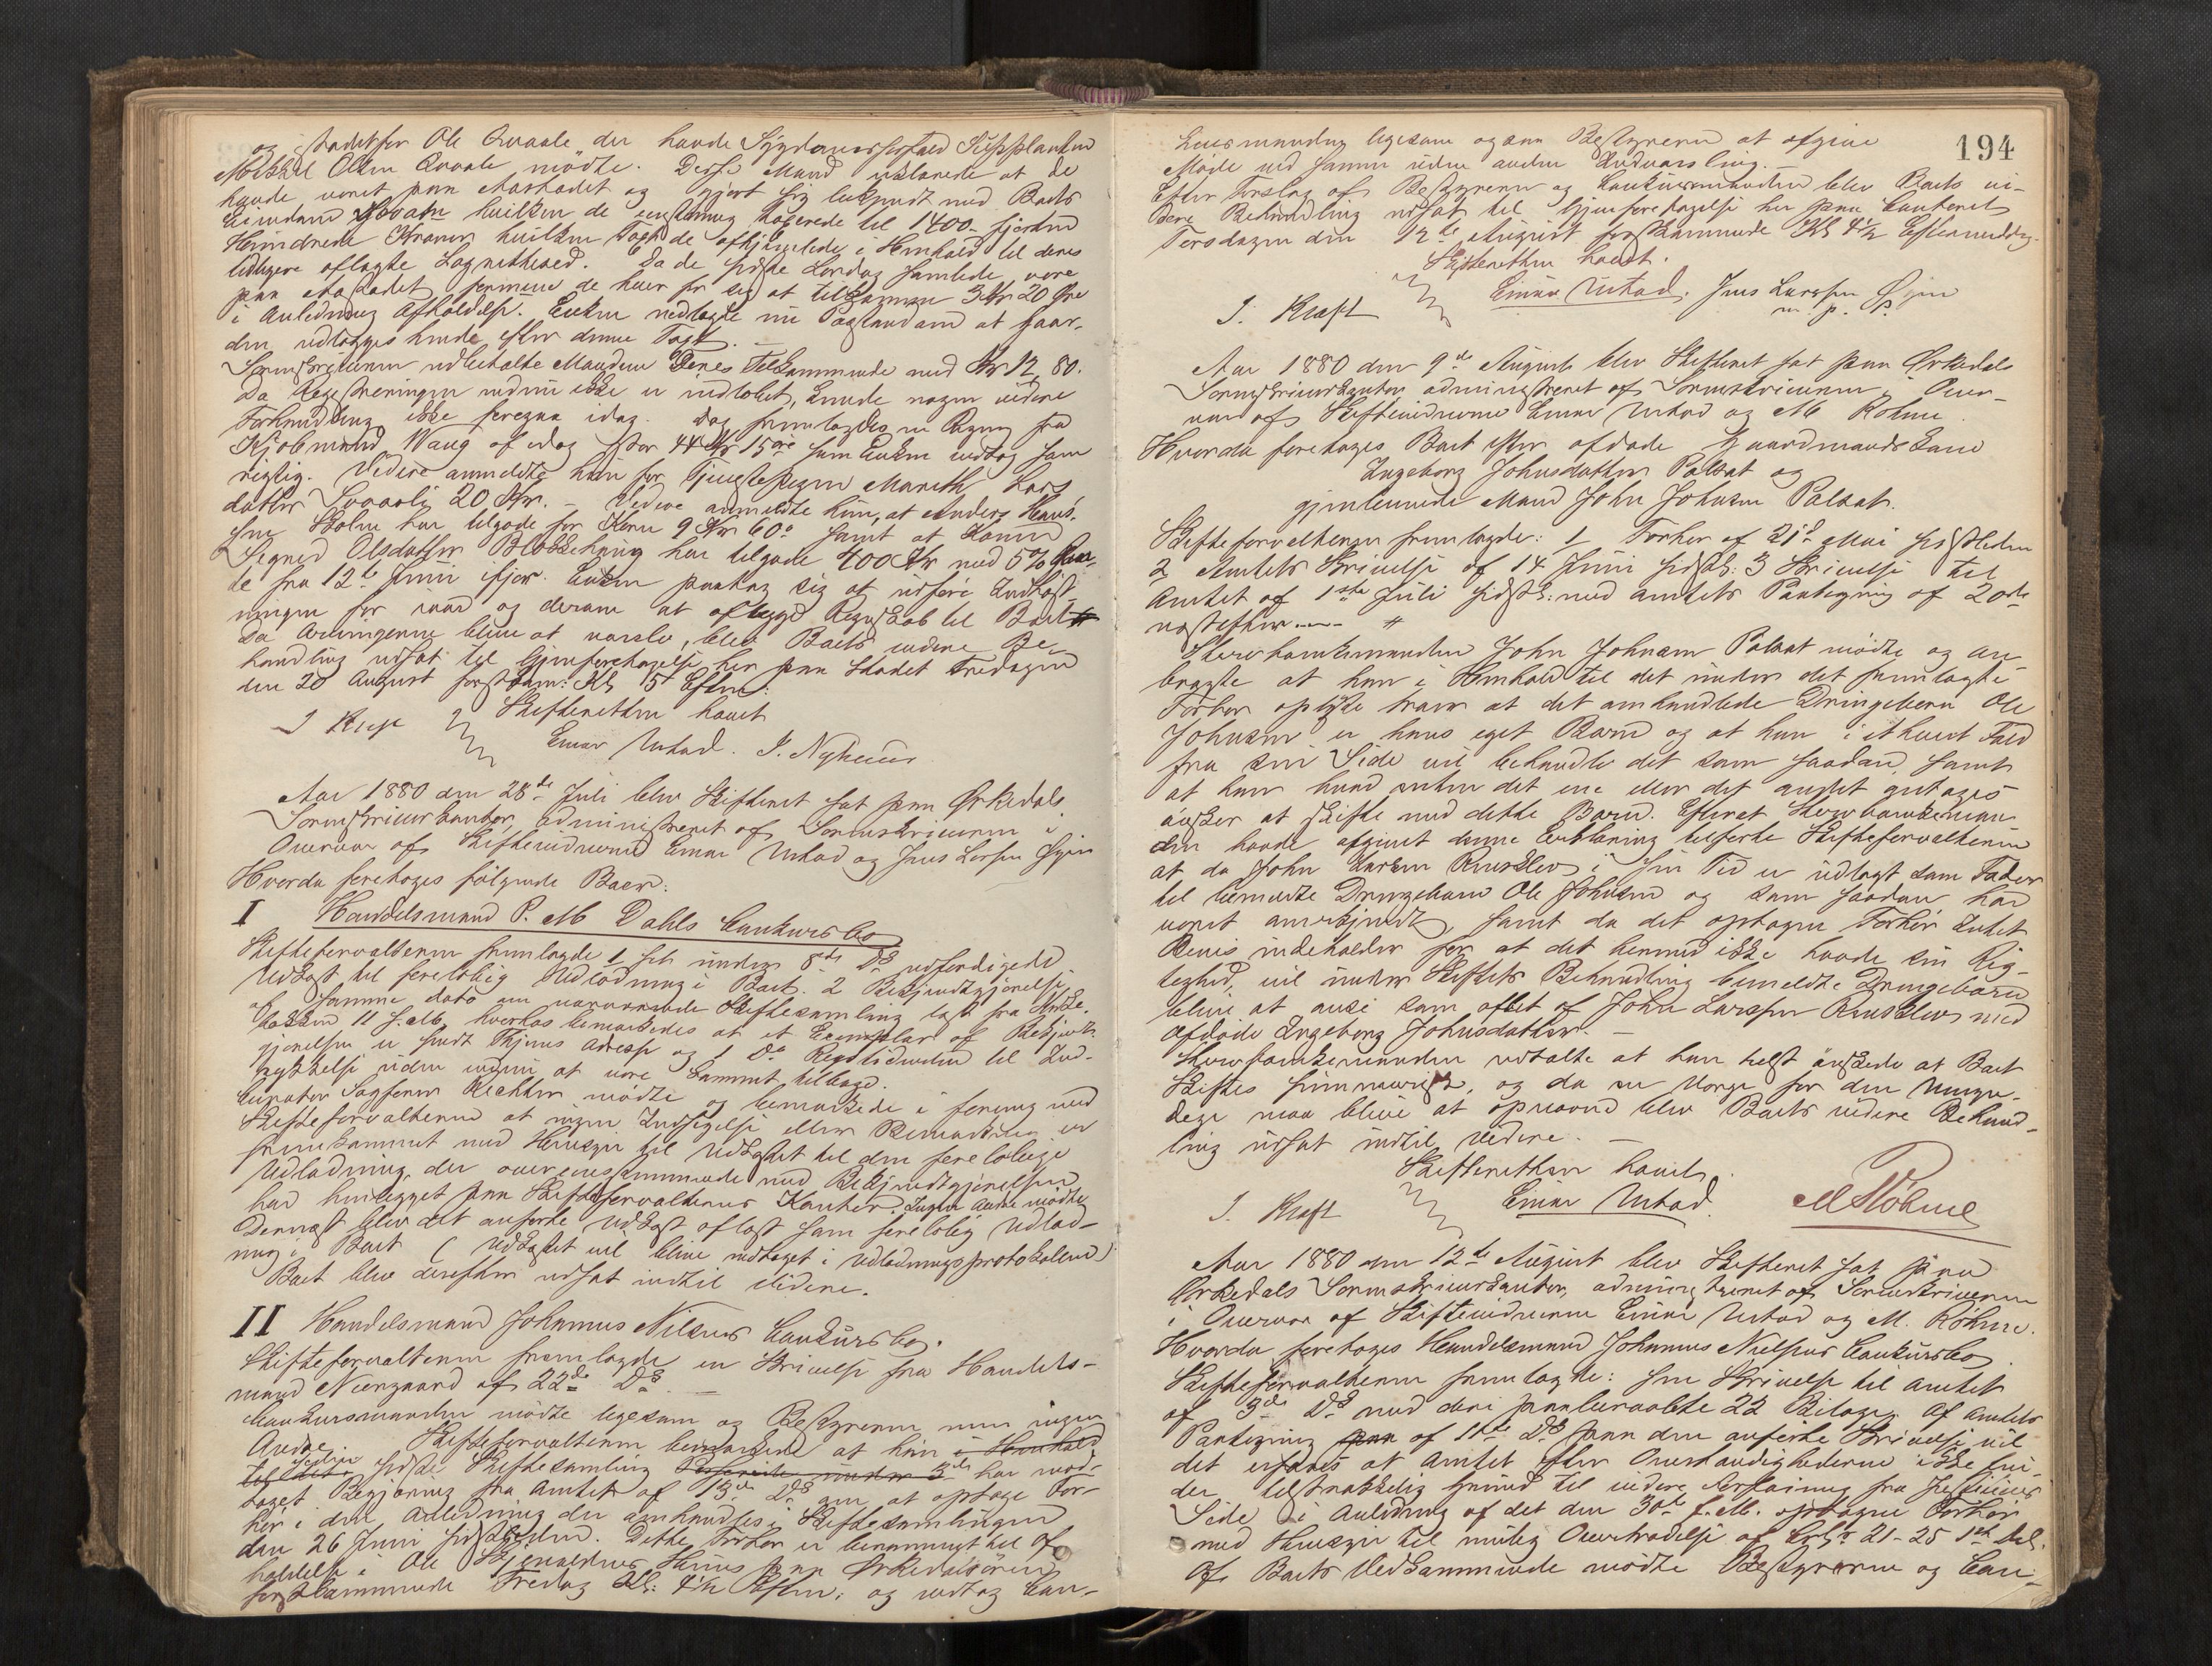 og istadetfor Ole Qvaale, der havde Sygdomsforfald Supplanten
Mikkel Olsen Qvaale mødte. Disse Mænd erklærede at de
havde været paa Aastadet og gjort sig bekjendt med Boets
Eiendom Hovaln hvilken de enstemmig taxerede til 1400 - fjorten
Hundrede Kroner hvilken Taxt de afhjemlede i Henhold til deres
tidligere aflagte Lagretheed. Da de sidste Lørdag samlede vare
paa Aastadet formene de hver for sig at tilkomme 3 Kr 20 Øre
i Anledning Afholdelse. Enken nedlagde nu Paastand om at Gaar-
den udlægges hende efter denne Taxt.
Sorenskriveren udbetalte Mændene Deres Tilkommende med Kr 12,80.
Da Registreringen endnu ikke er indløbet, kunde nogen videre
Forhandling ikke foregaa idag. Dog fremlagdes en Regning fra
Kjøbmand Waug af idag stor 44 Kr 15 Øre som Enken vedtog som
rigtig. Videre anmeldte hun for Tjenestepigen Mareth Lars
datter Svorli 20 Kr. - Videre anmeldte hun, at Anders Hans-
sen Skolen har tilgode for Korn 9 Kr 60 Ø samt at Konen
Segned Olsdatter Blokkehaug har tilgode 400 Kr med 5% Ren-
te fra 12te Juni ifjor. Enken paatog sig at udføre Indhøst-
ningen for iaar og derom at aflægge Regnskab til Boet.
Da Arvingerne bleve at varsle, blev Boets videre Be-
handling udsat til Gjenforetagelse her paa Stedet Fredagen
den 20 August førstkom: Kl 5 Efterm:
Skifteretten hævet
J Kraft Einar Ustad. J. Nyhuus
Aar 1880 den 28de Juli blev Skifteret sat paa Ørkedals
Sorenskriverkontor, administreret af Sorenskriveren i
Overvær af Skiftevidnerne Einar Ustad og Jens Larsen Øyen
Hvorda foretoges følgende Boer:
I Handelsmand P. M Dahls Concursbo
Skifteforvalteren fremlagde 1 sit under 8de Ds udfærdigede
Udkast til foreløbig Udlodning i Boet. 2 Bekjendtgjørelse
af samme dato om nærværende Skiftesamling læst fra Kirke-
bakken 11 s. M., hvorhos bemærkedes at et Exemplar af Bekjendt-
gjørelsen er sendt Thjems Adresse og 1 Do Rigstidenden til Ind-
rykkelse uden endnu at være kommet tilbage.
Curator Sagfører Richter mødte og bemærkede i forening med
Skifteforvalteren at ingen Indsigelse eller Bemærkning er
fremkommet med Hensyn til Udkastet til den foreløbige
Udlodning, der overensstemmende med Bekjendtgjørelsen
har henligget paa Skifteforvalterens Kontor. Ingen Andre mødte
Dernæst blev det anførte Udkast oplæst som foreløbig Udlod-
ning i Boet (Udkastet vil blive indtaget i Udlodningsprotokollen)
Boet blev derefter udsat indtil videre.
II Handelsmand Johannes Nilsens Concursbo.
Skifteforvalteren fremlagde en Skrivelse fra Handels-
mand Neergaard af 22de Ds. -
Concursmanden mødte ligesom og Bestyreren men ingen
Andre. Skifteforvalteren bemærkede at han i Henhold
til det siden sidste Skiftesamling Passerede under 3de har mod-
taget Begjæring fra Amtet af 13de Ds om at optage For-
hør i den Anledning der omhandles i Skiftesamlingen
den 26 Juni sidstleden. Dette Forhør er berammet til Af-
holdelse i Ole Skjenaldens Huus paa Ørkedalsøren
førstkommende Fredag Kl: 4½ Efterm: og vedtog Con-
194
cursmanden ligesom ogsaa Bestyreren at afgive
Møde ved samme uden anden Indvarsling.
Efter Forslag af Bestyreren og Concursmanden blev Boets vi-
dere Behandling udsat til Gjenforetagelse her paa Contoret
Torsdagen den 12te August førstkommende Kl 4½ Eftermiddag.
Skifteretten hævet.
J. Kraft Einar Ustad. Jens Larssen Øyen
m. p. P.
Aar 1880 den 9de August blev Skifteret sat paa Ørkedals
Sorenskriverkontor administreret af Sorenskriveren i Over-
vær af Skiftevidnerne Einar Ustad og M Röhme
Hvorda foretoges Boet efter afdøde Gaardmandskone
Ingeborg Johnsdatter Solsæt og
gjenlevende Mand John Johnsen Solsæt.
Skifteforvalteren fremlagde: 1 Forhør af 21de Mai sidstleden
2 Amtets Skrivelse af 14 Juni sidstl: 3 Skrivelse til
Amtet af 1ste Juli sidstl: med Amtets Paategning af 20de
næstefter.
Stervboenkemanden John Johnsen Solsæt mødte og an-
bragte at han i Henhold til det under det fremlagte
Forhør oplyste tror at det omhandlede Drengebarn Ole
Johnsen er hans eget Barn og at han i ethvert Fald
fra sin Side vil behandle det som saadan, samt
at han hvad enten det ene eller det andet antages
ønsker at skifte med dette Barn. Efterat Stervboenkeman-
den havde afgivet denne Erklæring tilførte Skifteforvalteren
at da John Larsen Ruuskler i sin Tid er udlagt som Fader
til bemeldte Drengebarn Ole Johnsen og som saadan har
været anerkjendt, samt da det optagne Forhør Intet
Beviis indeholder for at det hermed ikke havde sin Rig-
tighed, vil under Skiftets Behandling bemeldte Drengebarn
blive at anse som aflet af John Larssen Ruuskler med
Afdøde Ingeborg Johnsdatter. -
Stervboenkemanden udtalte at han helst ønskede at Boet
skiftes summarisk, og da en Værge for den Umyn-
dige maa blive at opnævne blev Boets videre Behand-
ling udsat indtil Videre. -
Skifteretten hævet.
J. Kraft Einar Ustad. M Röhme
Aar 1880 den 12te August blev Skifteret sat paa
Ørkedals Sorenskriverkontor, administreret af Sorenskriveren
i Overvær af Skiftevidnerne Einar Ustad og M. Röhme.
Hvorda foretoges Handelsmand Johannes Nielsens Concursbo
Skifteforvalteren fremlagde: sin Skrivelse til Amtet
af 3de Ds med deri paaberaabte 22 Bilage. Af Amtets
Paategning paa af 10de Ds paa den anførte Skrivelse vil
det erfares at Amtet efter Omstændighederne ikke fin-
der tilstrækkelig Grund til videre Forføining fra Justitiens
Side i Anledning af det den 30te f. M. optagne Forhør
med Hensyn til mulig Overtrædelse af Crl. 21-25 1st. Led.
Af Boets Vedkommende mødte Bestyreren og Con-